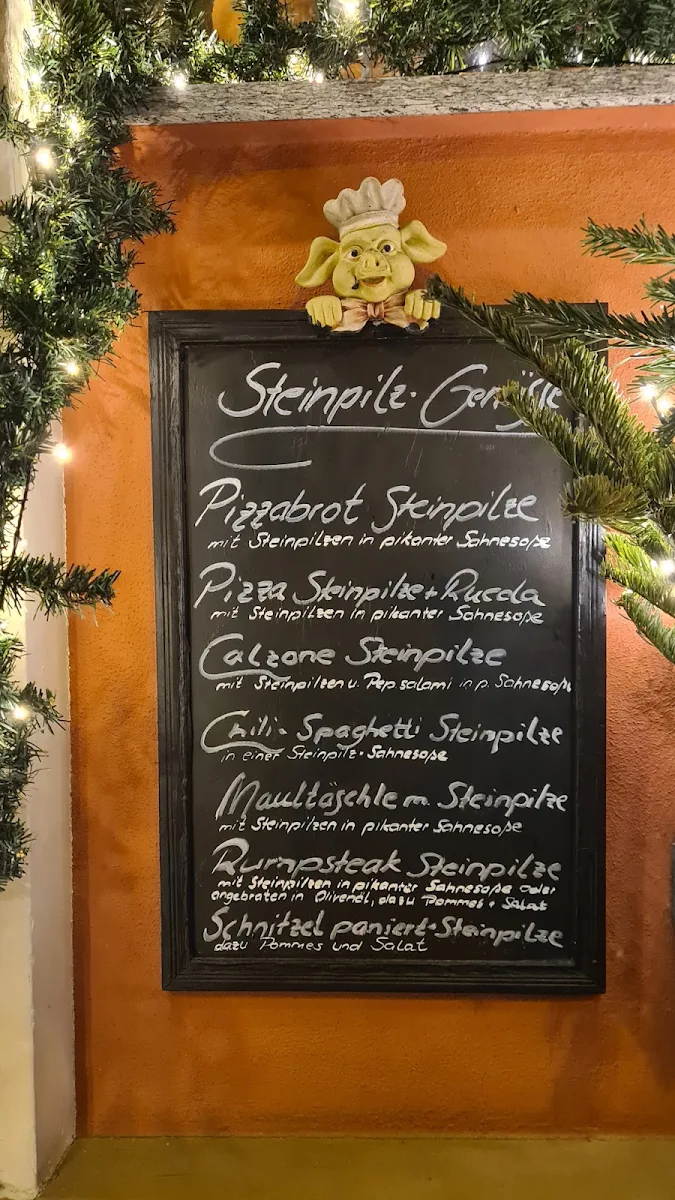 Steinpilz-
Pizzabrot Steinpilze
mit Steinpilzen in pikanter Sahnesoße
Pizza Steinpilze + Rucola
mit Steinpilzen in pikanter Sahnesoße
Calzone Steinpilze
mit Steinpilzen u. Pep.salami in p. Sahnesoße
Chili-Spaghetti Steinpilze
in einer Steinpilz-Sahnesoße
Maultäschle m. Steinpilze
mit Steinpilzen in pikanter Sahnesoße
Rumpsteak Steinpilze
mit Steinpilzen in pikanter Sahnesoße oder
angebraten in Olivenöl, dazu Pommes + Salat
Schnitzel paniert-Steinpilze
dazu Pommes und Salat